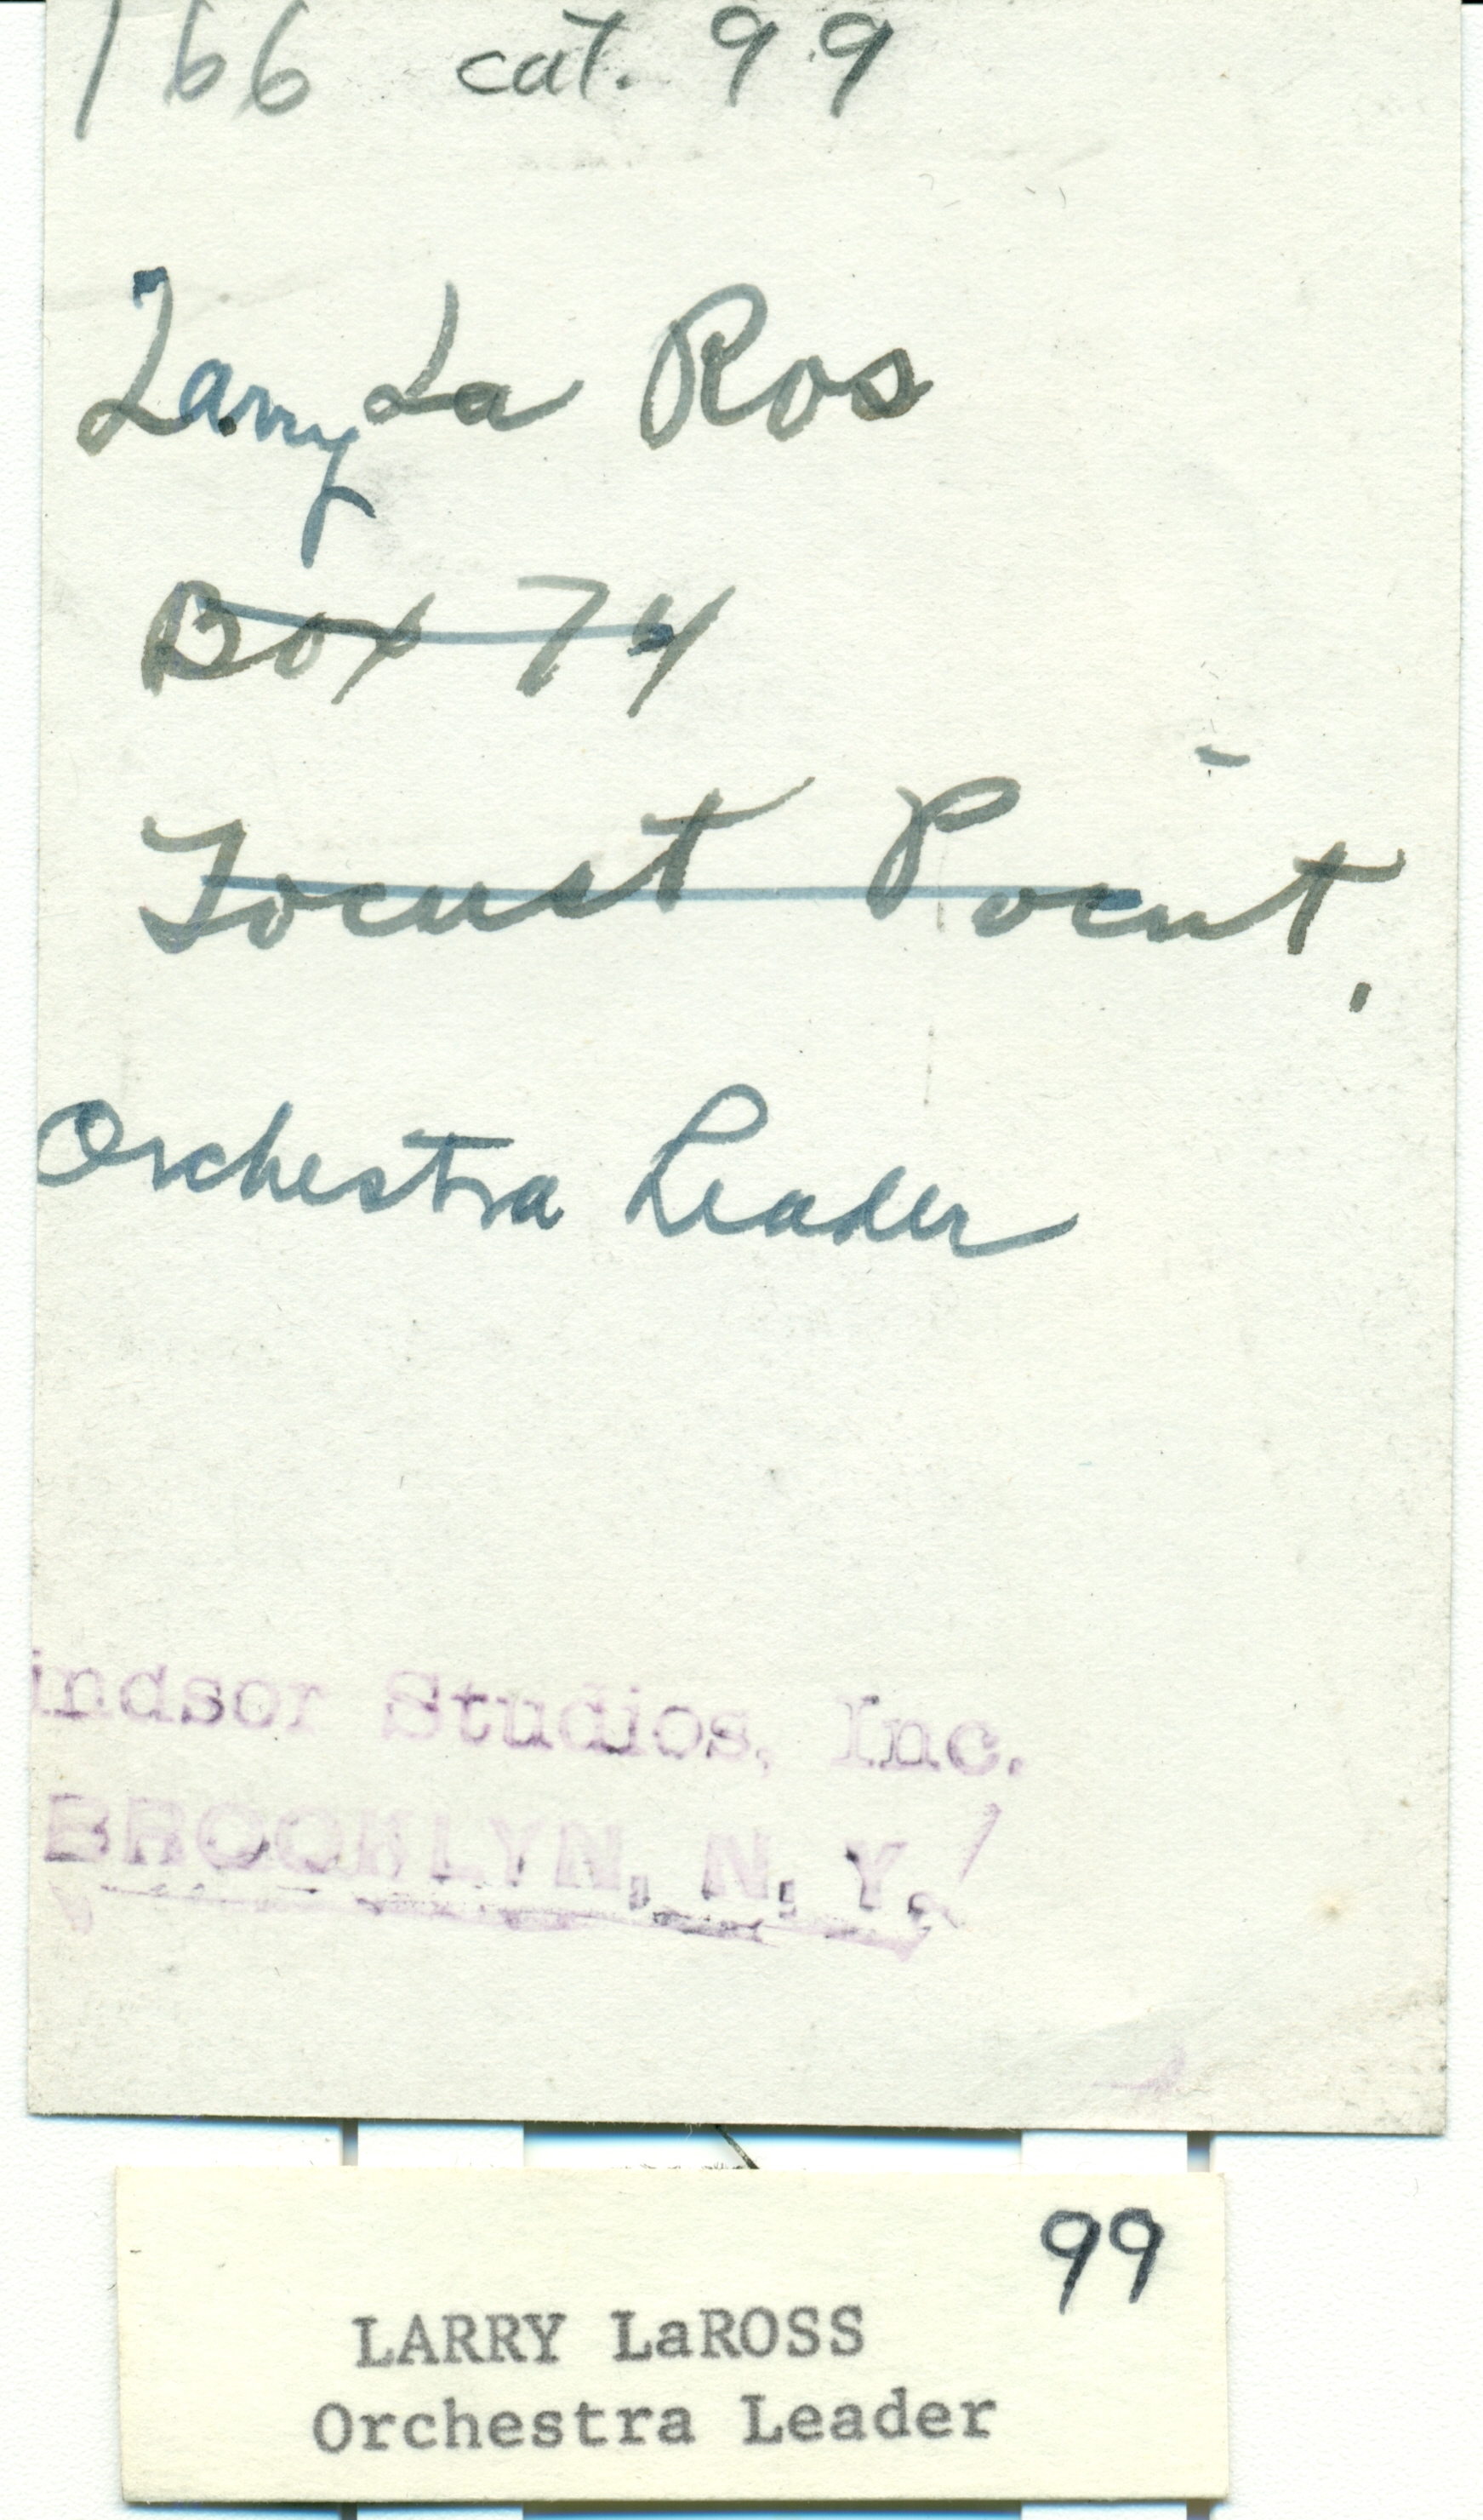 166 cat. 99
Larry La Ros
Box 74
Locust Point.
Orchestra Leader
indsor Studios, Inc.
BROOKLYN, N. Y.
99
LARRY LaROSS
Orchestra Leader